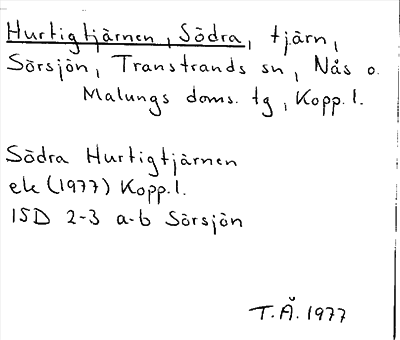 Hurtigtjärnen, Södra, tjärn,
Sörsjön, Transtrands sn, Nås o.
Malungs doms. tg, Kopp. l.
Södra Hurtigtjärnen
ek (1977) Kopp. l.
15D 2-3 a-b Sörsjön
T. Å. 1977